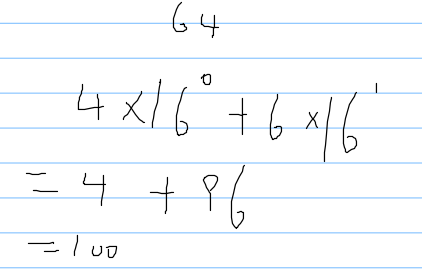 64
4 × 16⁰ + 6 × 16¹
= 4 + 96
= 100